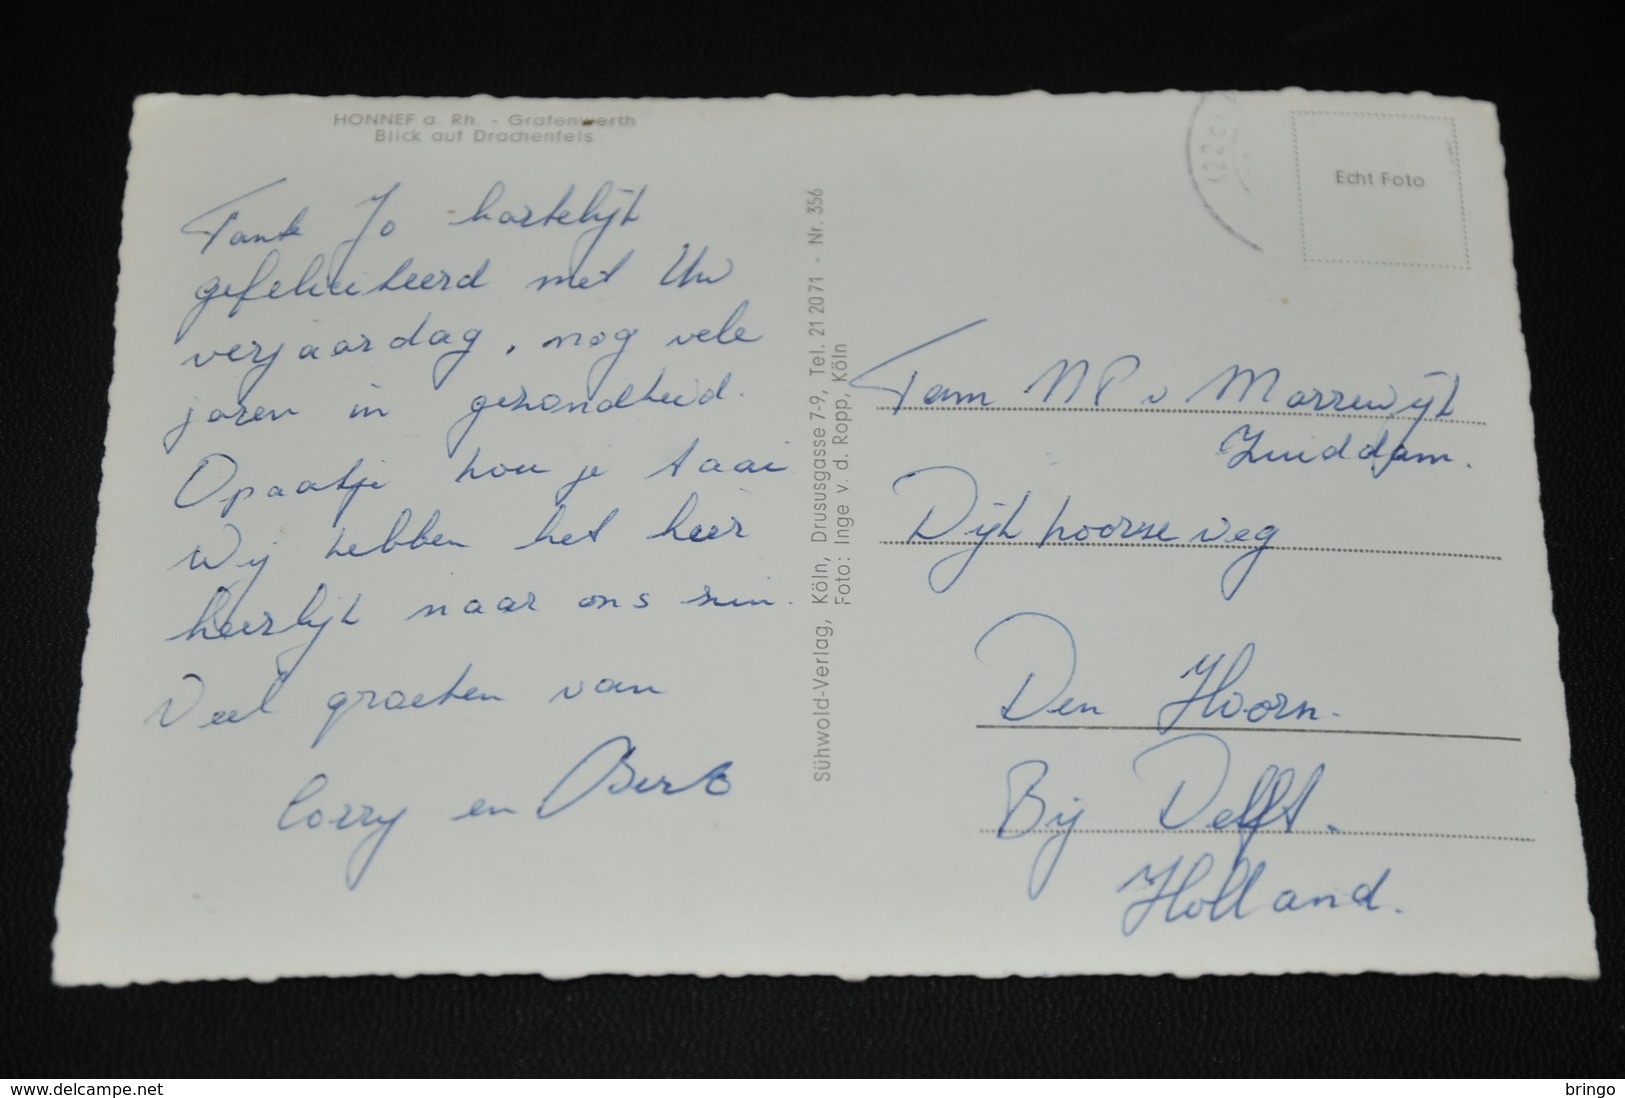 HONNEF a. Rh. - Grafenwerth
Blick auf Drachenfels
Tante Jo hartelijk
gefeliciteerd met Uw
verjaardag, nog vele
jaren in gezondheid.
Opaatje hou je taai
Wij hebben het hier
heerlijk naar ons zin.
Veel groeten van
Corry en Bert
Sühwold-Verlag, Köln, Drususgasse 7-9, Tel. 21 20 71 - Nr. 356
Foto: Inge v. d. Ropp, Köln
Echt Foto
Fam NP v Marrewijk
Zuiddam.
Dijkhoorseweg
Den Hoorn.
Bij Delft.
Holland.
www.delcampe.net
bringo